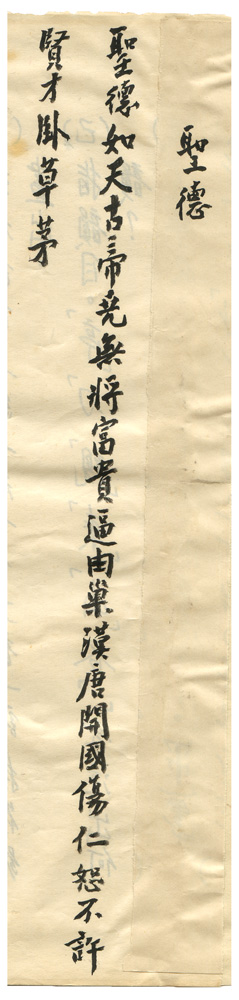 聖德
聖德如天古帝堯無將富貴逼由巢漢唐開國傷仁恕不許
賢才臥草茅